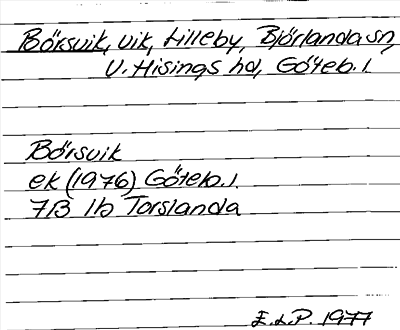 Börsvik, vik, Lilleby, Björlanda sn,
V. Hisings hd, Göteb. l.
Börsvik
ek (1976) Göteb. l.
7B 1b Torslanda
E.L.P. 1977